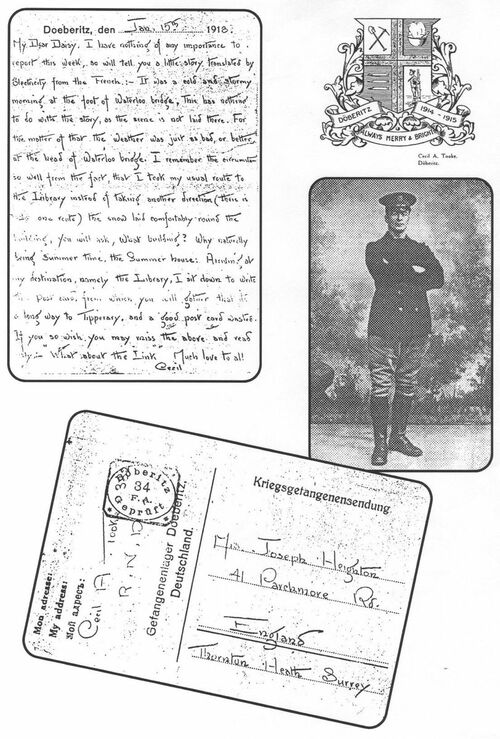 Doeberitz, den Jan. 15th 1918.
My Dear Daisy, I have nothing of any importance to
report this week, so will tell you a little story, translated by
Electricity from the French, :- It was a cold and stormy
morning at the foot of Waterloo bridge, This has nothing
to do with the story, as the scene is not laid there. For
the matter of that the weather was just as bad, or better,
at the head of Waterloo bridge. I remember the circumstance
so well from the fact, that I took my usual route to
the Library instead of taking another direction (there is
one route) the snow laid comfortably round the
building, you will ask, what building? Why naturally
being Summer time, the Summer house. Arriving at
my destination, namely the Library, I sit down to write
post card, from which you will gather that it's
a long way to Tipperary, and a good post card wasted.
If you so wish you may miss the above and read
"What about the Link" Much love to all!
Cecil
DÖBERITZ 1914-1915
ALWAYS MERRY & BRIGHT
Cecil A. Tooke.
Döberitz.
Kriegsgefangenensendung.
Mrs. Joseph Heighton
41 Parchmore Rd.
England
Thornton Heath Surrey
Döberitz
34
F.A.
Geprüft
Mon adresse:
My address:
Мой адресъ:
Cecil A Tooke
R.N.D
Gefangenenlager Doeberitz,
Deutschland.